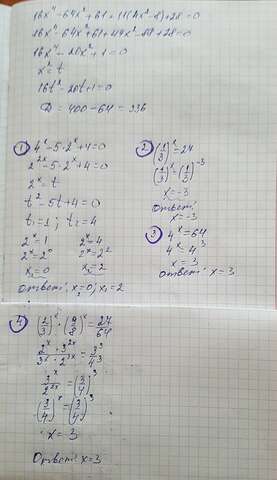 16x⁴-64x²+61+11(4x²-8)+28=0
16x⁴-64x²+61+44x²-88+28=0
16x⁴-20x²+1=0
x²=t
16t²-20t+1=0
D=400-64=336
① 4ˣ-5·2ˣ+4=0
2²ˣ-5·2ˣ+4=0
2ˣ=t
t²-5t+4=0
t₁=1; t₂=4
2ˣ=1 2ˣ=4
2ˣ=2⁰ 2ˣ=2²
x₁=0 x₂=2
Ответ: x₁=0; x₂=2
② (1/3)ˣ=27
(1/3)ˣ=(1/3)⁻³
x=-3
Ответ:
x=-3
③ 4ˣ=64
4ˣ=4³
x=3
Ответ: x=3
④ (2/3)ˣ·(9/8)ˣ=27/64
(2ˣ·3²ˣ)/(3ˣ·2³ˣ)=3³/4³
3ˣ/2²ˣ=(3/4)³
(3/4)ˣ=(3/4)³
x=3
Ответ: x=3